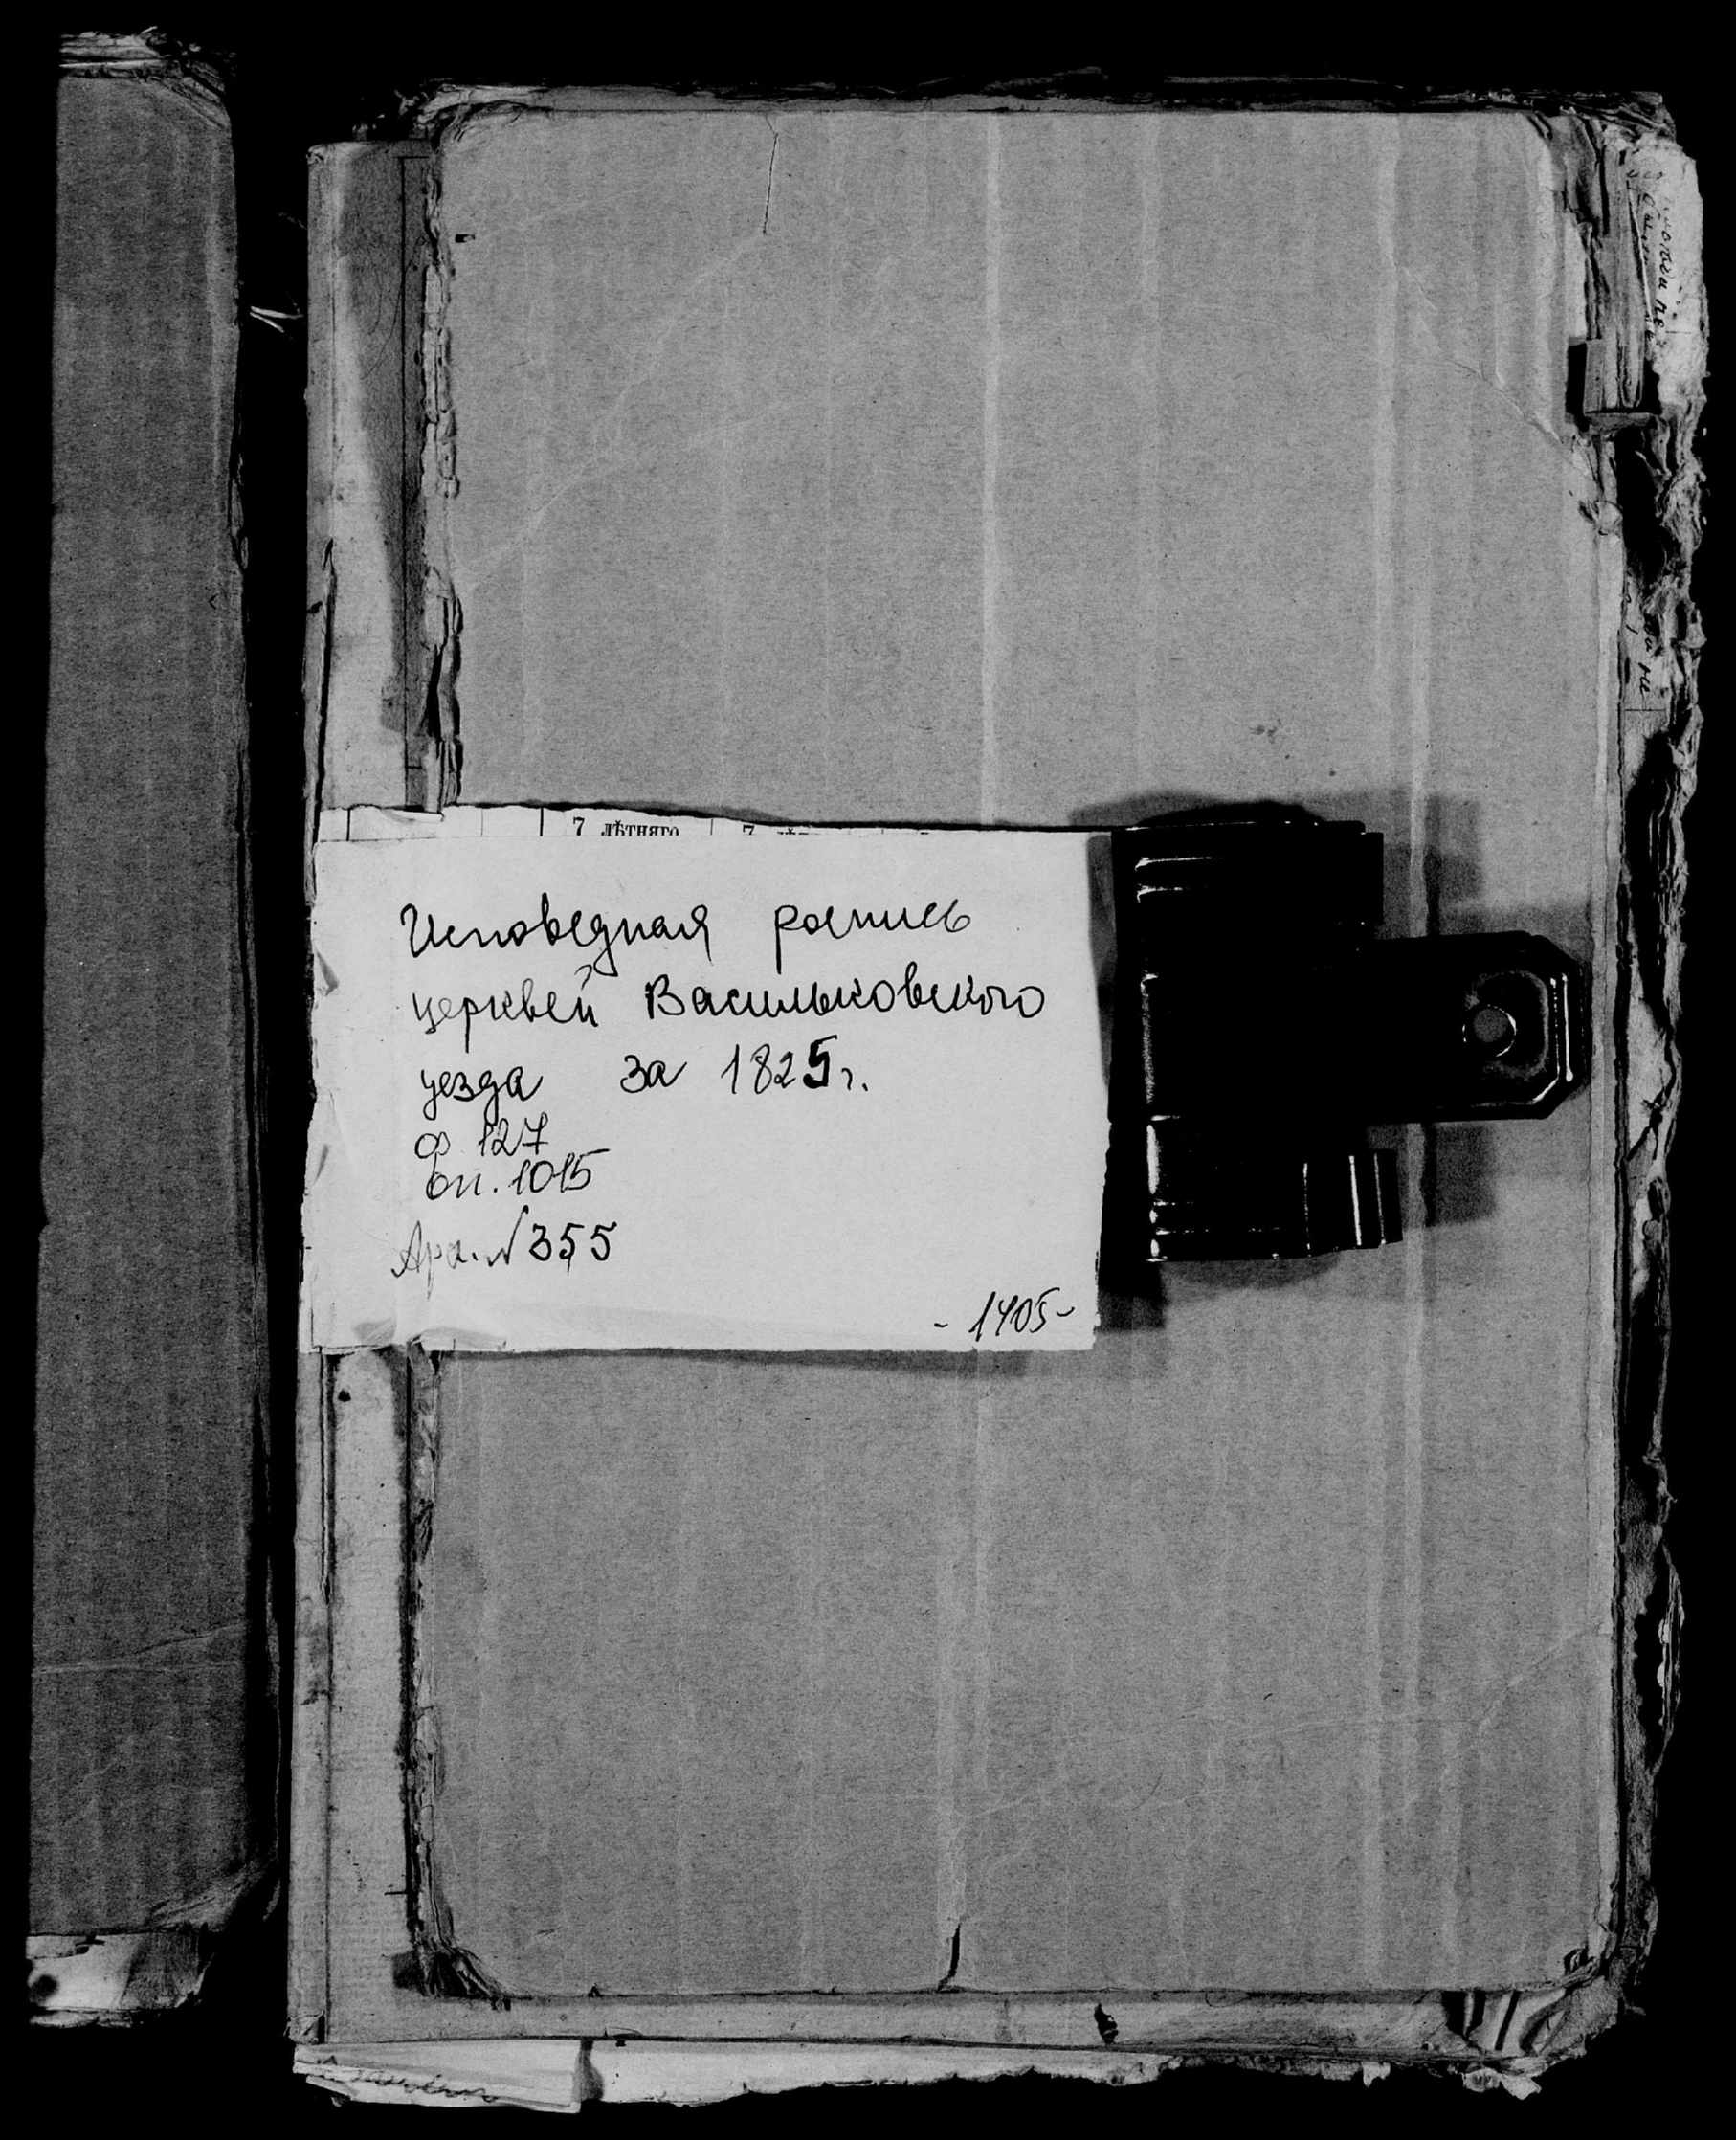 7 лѣтняго 7
Исповедная роспись
церквей Васильковского
уезда за 1825 г.
ф. 127
оп. 1015
Арх. № 355
- 1405 -